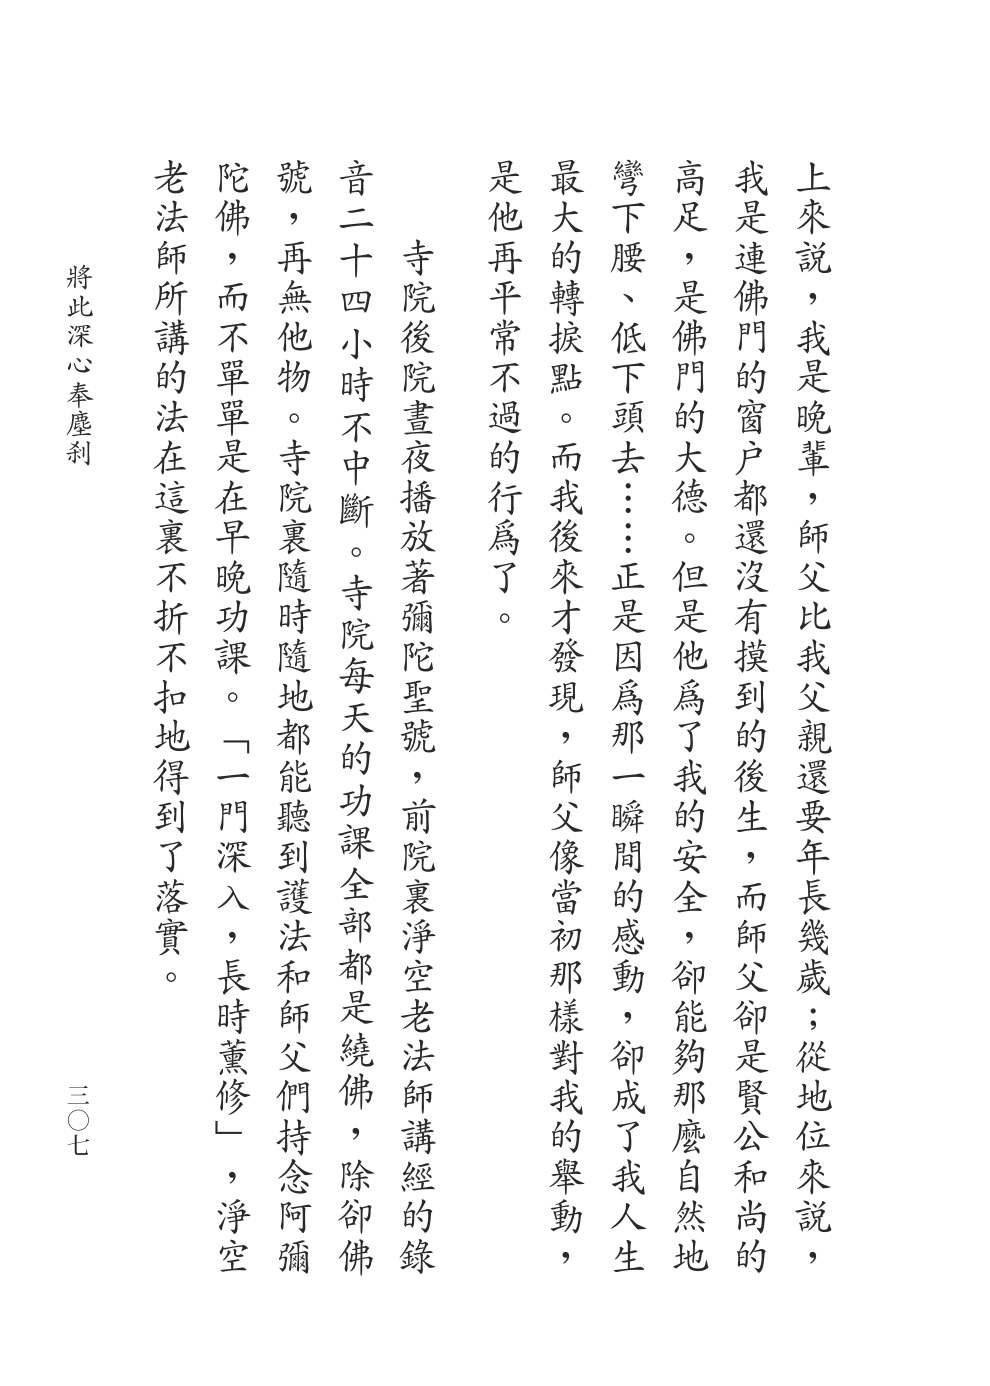 上來説，我是晚輩，師父比我父親還要年長幾歲；從地位來説，
我是連佛門的窗户都還沒有摸到的後生，而師父卻是賢公和尚的
高足，是佛門的大德。但是他爲了我的安全，卻能夠那麼自然地
彎下腰、低下頭去……正是因爲那一瞬間的感動，卻成了我人生
最大的轉捩點。而我後來才發現，師父像當初那樣對我的舉動，
是他再平常不過的行爲了。
寺院後院晝夜播放著彌陀聖號，前院裏淨空老法師講經的錄
音二十四小時不中斷。寺院每天的功課全部都是繞佛，除卻佛
號，再無他物。寺院裏隨時隨地都能聽到護法和師父們持念阿彌
陀佛，而不單單是在早晚功課。「一門深入，長時薰修」，淨空
老法師所講的法在這裏不折不扣地得到了落實。
將此深心奉塵刹
三〇七